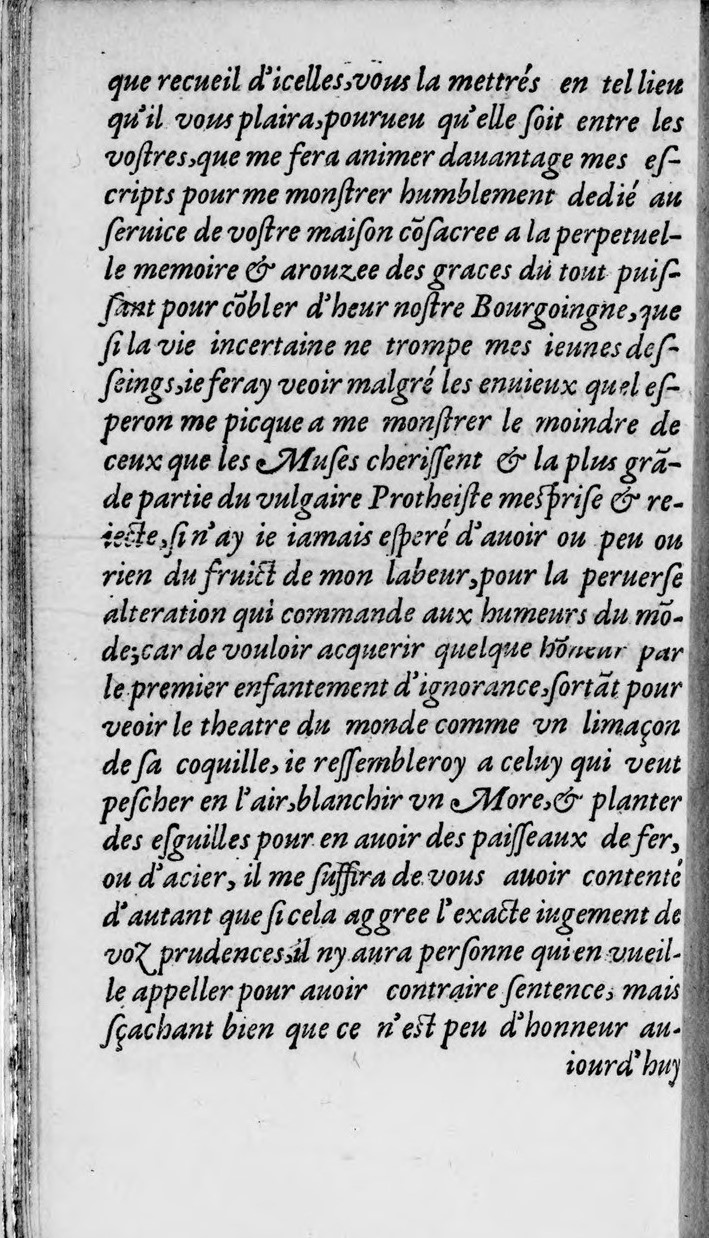 que recueil d'icelles, vous la mettrés en tel lieu
qu'il vous plaira, pourueu qu'elle ſoit entre les
voſtres, que me fera animer dauantage mes eſ-
cripts pour me monſtrer humblement dedié au
ſeruice de voſtre maiſon cõſacree a la perpetuel-
le memoire & arouzee des graces du tout puiſ-
ſant pour cõbler d'heur noſtre Bourgoingne, que
ſi la vie incertaine ne trompe mes ieunes deſ-
ſeings, ie feray veoir malgré les enuieux quel eſ-
peron me picque a me monſtrer le moindre de
ceux que les Muſes cheriſſent & la plus grã-
de partie du vulgaire Protheiſte meſpriſe & re-
iecte, ſi n'ay ie iamais eſperé d'auoir ou peu ou
rien du fruict de mon labeur, pour la peruerſe
alteration qui commande aux humeurs du mõ-
de; car de vouloir acquerir quelque hõneur par
le premier enfantement d'ignorance, ſortãt pour
veoir le theatre du monde comme vn limaçon
de ſa coquille, ie reſſembleroy a celuy qui veut
peſcher en l'air, blanchir vn More, & planter
des eſguilles pour en auoir des paiſſeaux de fer,
ou d'acier, il me ſuffira de vous auoir contenté
d'autant que ſi cela aggree l'exacte iugement de
voz prudences, il ny aura perſonne qui en vueil-
le appeller pour auoir contraire ſentence, mais
ſçachant bien que ce n'eſt peu d'honneur au-
iourd'huy